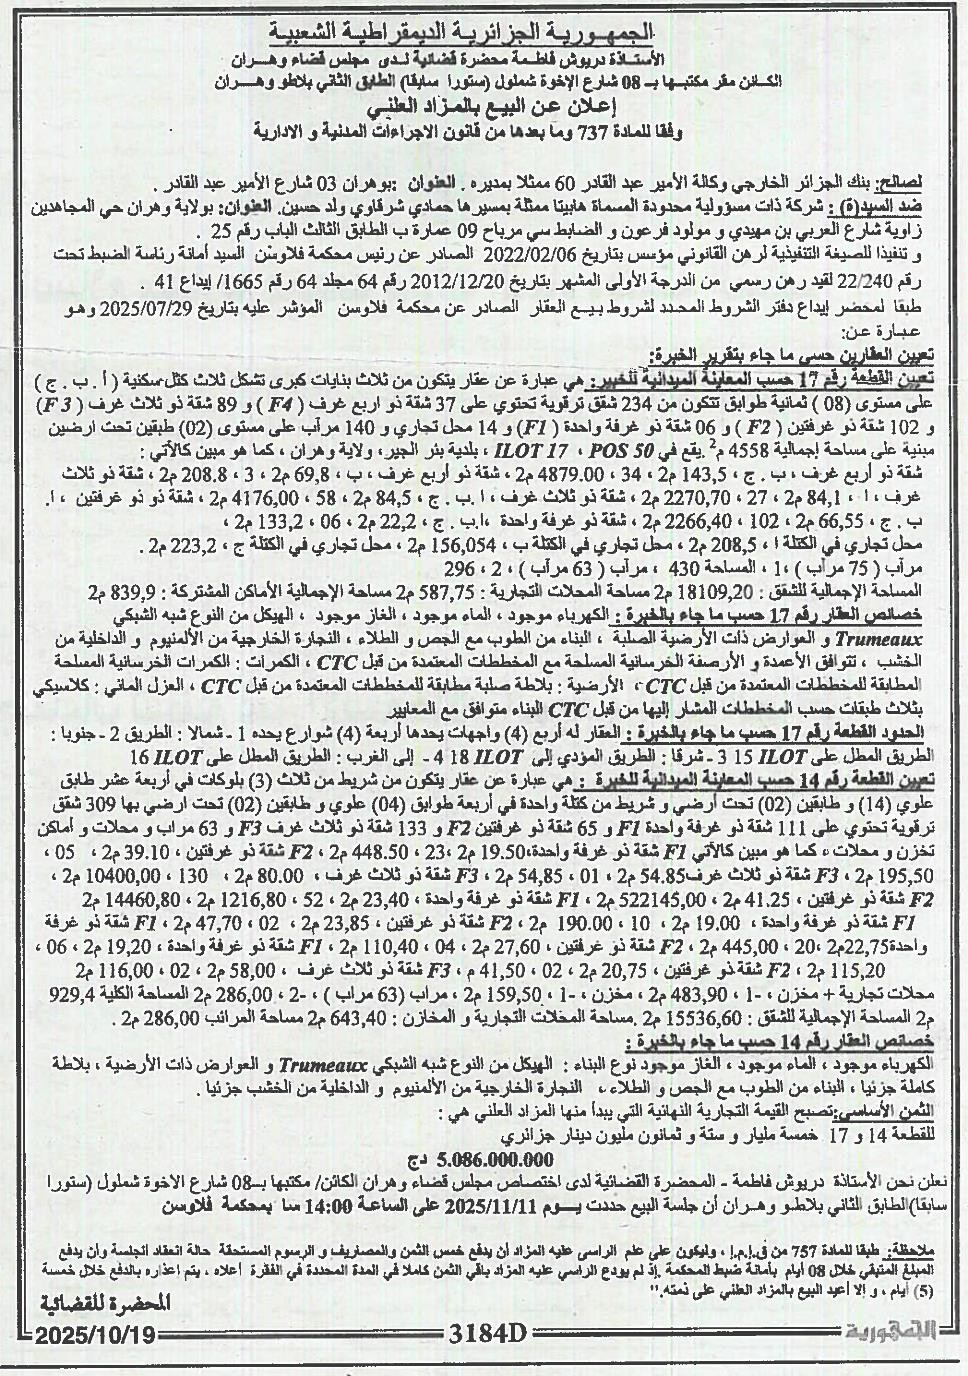 الجمهورية الجزائرية الديمقراطية الشعبية
الأستاذة دريوش فاطمة محضرة قضائية لدى مجلس قضاء وهران
الكائن مقر مكتبها بـ 08 شارع الإخوة شملول (ستورا سابقا) الطابق الثاني بلاطو وهران
إعلان عن البيع بالمزاد العلني
وفقا للمادة 737 وما بعدها من قانون الاجراءات المدنية و الادارية
لصالح: بنك الجزائر الخارجي وكالة الأمير عبد القادر 60 ممثلا بمديره . العنوان :بوهران 03 شارع الأمير عبد القادر .
ضد السيد(ة) : شركة ذات مسؤولية محدودة المسماة هابيتا ممثلة بمسيرها حمادي شرقاوي ولد حسين. العنوان: بولاية وهران حي المجاهدين
زاوية شارع العربي بن مهيدي و مولود فرعون و الضابط سي مرباح 09 عمارة ب الطابق الثالث الباب رقم 25 .
و تنفيذا للصيغة التنفيذية لرهن القانوني مؤسس بتاريخ 2022/02/06 الصادر عن رئيس محكمة فلاوسن السيد أمانة رئاسة الضبط تحت
رقم 22/240 لقيد رهن رسمي من الدرجة الأولى المشهر بتاريخ 2012/12/20 رقم 64 مجلد 64 رقم 1665/ إيداع 41 .
طبقا لمحضر إيداع دفتر الشروط المحدد لشروط بيع العقار الصادر عن محكمة فلاوسن المؤشر عليه بتاريخ 2025/07/29 وهو
عبارة عن:
تعيين العقارين حسى ما جاء بتقرير الخبرة:
تعيين القطعة رقم 17 حسب المعاينة الميدانية للخبير: هي عبارة عن عقار يتكون من ثلاث بنايات كبرى تشكل ثلاث كتل سكنية ( أ . ب . ج )
على مستوى (08 ) ثمانية طوابق تتكون من 234 شقق ترقوية تحتوي على 37 شقة ذو اربع غرف ( F4 ) و 89 شقة ذو ثلاث غرف ( F 3 )
و 102 شقة ذو غرفتين ( F2 ) و 06 شقة ذو غرفة واحدة ( F1 ) و 14 محل تجاري و 140 مرأب على مستوى (02) طبقين تحت ارضين
مبنية على مساحة إجمالية 4558 م2 .يقع في POS 50 ، ILOT 17 ، بلدية بئر الجير، ولاية وهران ، كما هو مبين كالآتي :
شقة ذو أربع غرف ، ب . ج ، 143,5 م2 ، 34 ، 4879.00 م2 ، شقة ذو أربع غرف ، ب ، 69,8 م2 ، 3 ، 208.8 م2 ، شقة ذو ثلاث
غرف ، ا ، 84,1 م2 ، 27 ، 2270,70 م2 ، شقة ذو ثلاث غرف ، ا .ب . ج ، 84,5 م2 ، 58 ، 4176,00 م2 ، شقة ذو ذو غرفتين ، ا.
ب . ج ، 66,55 م2 ، 102 ، 2266,40 م2 ، شقة ذو غرفة واحدة ،ا.ب . ج ، 22,2 م2 ، 06 ، 133,2 م2 ،
محل تجاري في الكتلة ا ، 208,5 م2 ، محل تجاري في الكتلة ب ، 156,054 م2 ، محل تجاري في الكتلة ج ، 223,2 م2 .
مرآب ( 75 مرآب ) ،1 ، المساحة 430 ، مرآب ( 63 مرآب ) ، 2 ، 296
المساحة الإجمالية للشقق : 18109,20 م2 مساحة المحلات التجارية : 587,75 م2 مساحة الإجمالية الأماكن المشتركة : 839,9 م2
خصائص العقار رقم 17 حسب ما جاء بالخبرة : الكهرباء موجود ، الماء موجود ، الغاز موجود ، الهيكل من النوع شبه الشبكي
Trumeaux و العوارض ذات الأرضية الصلبة ، البناء من الطوب مع الجص و الطلاء ، النجارة الخارجية من الألمنيوم و الداخلية من
الخشب ، تتوافق الأعمدة و الأرصفة الخرسانية المسلحة مع المخططات المعتمدة من قبل CTC ، الكمرات : الكمرات الخرسانية المسلحة
المطابقة للمخططات المعتمدة من قبل CTC ، الأرضية : بلاطة صلبة مطابقة للمخططات المعتمدة من قبل CTC ، العزل المائي : كلاسيكي
بثلاث طبقات حسب المخططات المشار إليها من قبل CTC البناء متوافق مع المعايير
الحدود القطعة رقم 17 حسب ما جاء بالخبرة : العقار له أربع (4) واجهات يحدها أربعة (4) شوارع يحده 1 - شمالا : الطريق 2 - جنوبا :
الطريق المطل على ILOT 15 3 - شرقا : الطريق المؤدي إلى ILOT 18 4 - إلى الغرب : الطريق المطل على ILOT 16
تعيين القطعة رقم 14 حسب المعاينة الميدانية للخبرة : هي عبارة عن عقار يتكون من شريط من ثلاث (3) بلوكات في أربعة عشر طابق
علوي (14) و طابقين (02) تحت أرضي و شريط من كتلة واحدة في أربعة طوابق (04) علوي و طابقين (02) تحت ارضي بها 309 شقق
ترقوية تحتوي على 111 شقة ذو غرفة واحدة F1 و 65 شقة ذو غرفتين F2 و 133 شقة ذو ثلاث غرف F3 و 63 مراب و محلات و أماكن
تخزن و محلات ، كما هو مبين كالآتي F1 شقة ذو غرفة واحدة،19.50 م2 ،23 ، 448.50 م2 ، F2 شقة ذو غرفتين ، 39.10 م2 ، 05 ،
195,50 م2 ، F3 شقة ذو ثلاث غرف،54.85 م2 ، 01 ، 54,85 م2 ، F3 شقة ذو ثلاث غرف ، 80.00 م2 ، 130 ، 10400,00 م2 ،
F2 شقة ذو غرفتين ، 41.25 م2 ، 522145,00 م2 ، F1 شقة ذو غرفة واحدة ، 23,40 م2 ، 52 ، 1216,80 م2 ، 14460,80 م2
F1 شقة ذو غرفة واحدة ، 19.00 م2 ، 10 ، 190.00 م2 ، F2 شقة ذو غرفتين ، 23,85 م2 ، 02 ، 47,70 م2 ، F1 شقة ذو غرفة
واحدة22,75م2 ،20 ، 445,00 م2 ، F2 شقة ذو غرفتين ، 27,60 م2 ، 04 ، 110,40 م2 ، F1 شقة ذو غرفة واحدة ، 19,20 م2 ، 06 ،
115,20 م2 ، F2 شقة ذو غرفتين ، 20,75 م2 ، 02 ، 41,50 م ، F3 شقة ذو ثلاث غرف ، 58,00 م2 ، 02 ، 116,00 م2
محلات تجارية + مخزن ، -1 ، 483,90 م2 ، مخزن ، -1 ، 159,50 م2 ، مراب (63 مراب ) ، -2 ، 286,00 م2 المساحة الكلية 929,4
م2 المساحة الإجمالية للشقق : 15536,60 م2 .مساحة المحلات التجارية و المخازن : 643,40 م2 مساحة المرائب 286,00 م2 .
خصائص العقار رقم 14 حسب ما جاء بالخبرة :
الكهرباء موجود ، الماء موجود ، الغاز موجود نوع البناء : الهيكل من النوع شبه الشبكي Trumeaux و العوارض ذات الأرضية ، بلاطة
كاملة جزئيا ، البناء من الطوب مع الجص و الطلاء ، النجارة الخارجية من الألمنيوم و الداخلية من الخشب جزئيا .
الثمن الأساسي:تصبح القيمة التجارية النهائية التي يبدأ منها المزاد العلني هي :
للقطعة 14 و 17 خمسة مليار و ستة و ثمانون مليون دينار جزائري
5.086.000.000 دج
نعلن نحن الأستاذة دريوش فاطمة - المحضرة القضائية لدى اختصاص مجلس قضاء وهران الكائن/ مكتبها بـ08 شارع الاخوة شملول (ستورا
سابقا)الطابق الثاني بلاطو وهران أن جلسة البيع حددت يوم 2025/11/11 على الساعة 14:00 سا بمحكمة فلاوسن
ملاحظة: طبقا للمادة 757 من ق.إ.م.إ ، وليكون على علم الراسي عليه المزاد أن يدفع خمس الثمن والمصاريف و الرسوم المستحقة حالة انعقاد الجلسة وأن يدفع
المبلغ المتبقي خلال 08 أيام بأمانة ضبط المحكمة .إذ لم يودع الراسي عليه المزاد باقي الثمن كاملا في المدة المحددة في الفقرة أعلاه ، يتم اعذاره بالدفع خلال خمسة
(5) أيام ، و إلا أعيد البيع بالمزاد العلني على ذمته."
المحضرة للقضائية
الجمهورية 3184D 2025/10/19